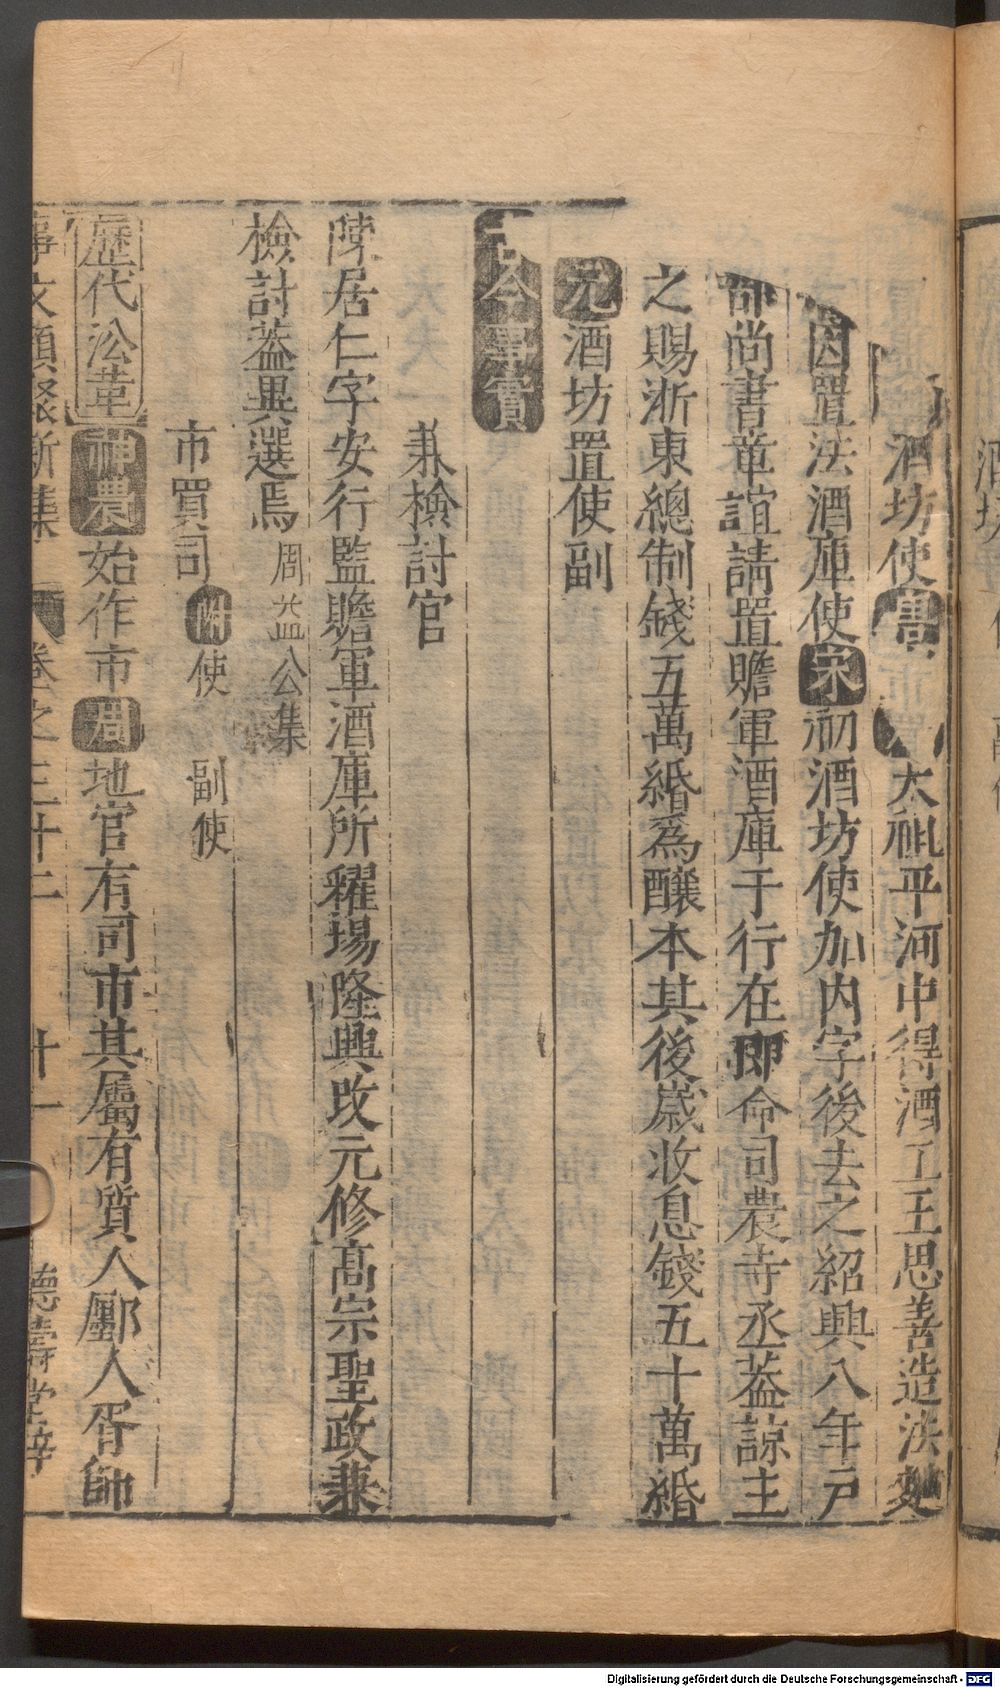 酒坊使
太祖平河中得酒工王思善造法麴
因置法酒庫使宋初酒坊使加内字後去之紹興八年戸
部尚書章誼請置贍軍酒庫于行在即命司農寺丞葢諒主
之賜浙東總制錢五萬緡爲釀本其後嵗收息錢五十萬緡
元酒坊置使副
古今事實
兼檢討官
陳居仁字安行監贍軍酒庫所糴場隆興改元修髙宗聖政兼
檢討葢異選焉周益公集
市買司附使 副使
歷代沿革神農始作市周地官有司市其屬有質人廛人胥師
事文類聚新集 卷之三十二 十一 德壽堂梓
Digitalisierung gefördert durch die Deutsche Forschungsgemeinschaft - DFG